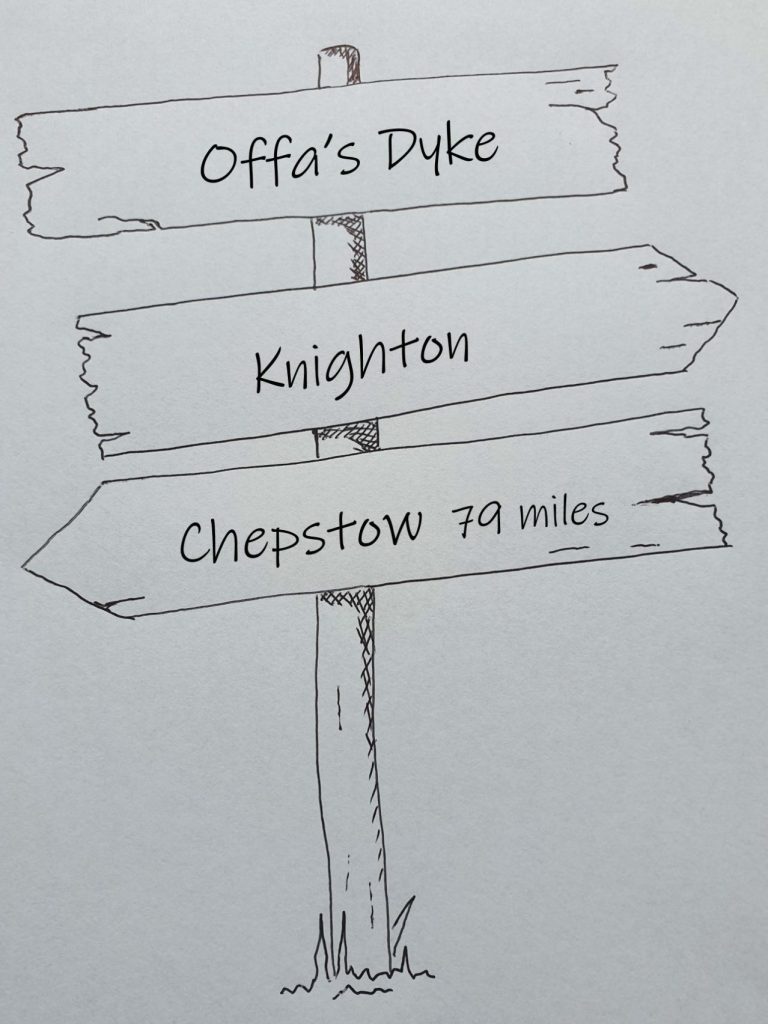 Offa's Dyke
Knighton
Chepstow 79 miles